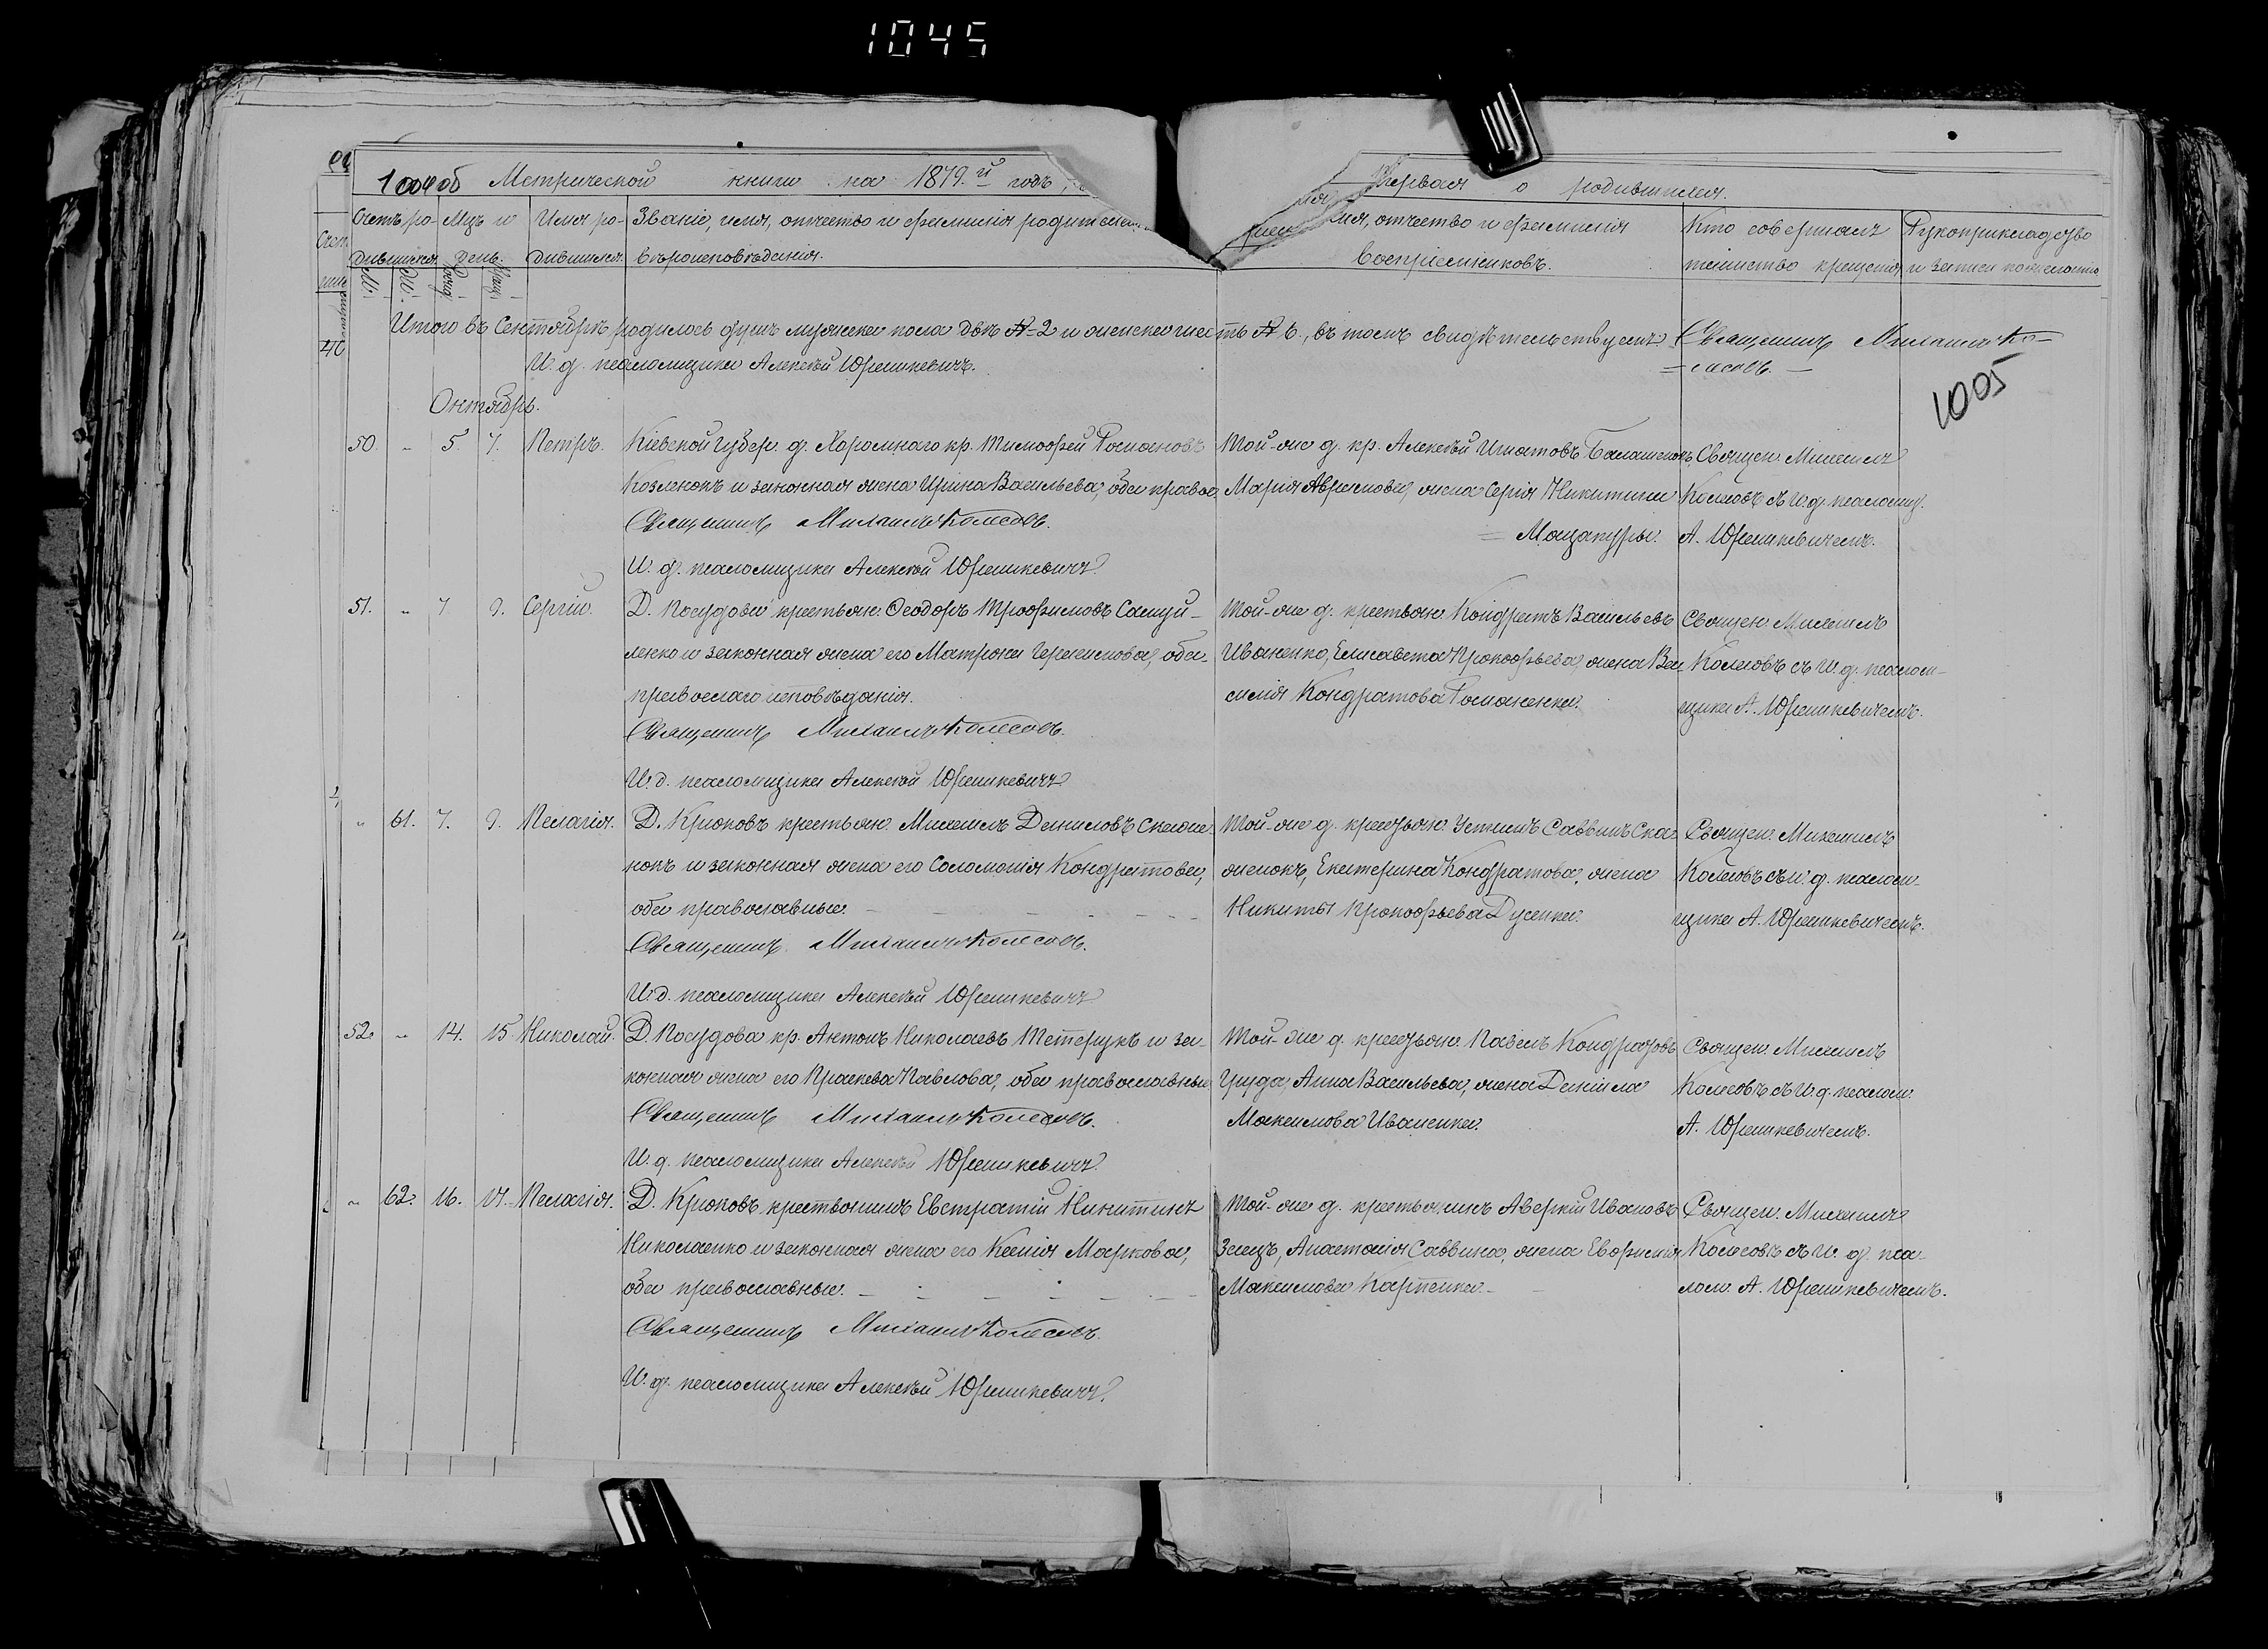 1045
1004 об Метрической книги на 1879.й годъ,
Первая о родившихся.
Счетъ ро- Мѣц. и Имя ро- Званіе, имя, отчество и фамилія родителей
дившихся. день. дившихся. вѣроисповѣданія.
имя, отчество и фамилія Кто совершалъ Рукоприкладство
воспріемниковъ. таинство крещенія и записи по желанію
М. Ж.
Итого въ Сентябрѣ родилось душъ мужеска пола двѣ 2 и женска шесть 6, въ томъ свидѣтельствуемъ: Священникъ Михаилъ Ко-
лесовъ.
И. д. псаломщика Алексѣй Юрашкевичъ.
1005
Октябрь.
50. 5. 7. Петръ. Кіевской Губер. д. Хоромнаго кр. Тимофей Романовъ
Козленокъ и законная жена Ирина Васильева, оба правос.
Священникъ Михаилъ Колесовъ.
И. д. псаломщика Алексѣй Юрашкевичъ.
Той-же д. кр. Алексѣй Игнатовъ Балашенокъ,
Марія Аврамова, жена Сергія Никитина
Мацапуры.
Священ. Михаилъ
Колесовъ съ И. д. псаломщ.
А. Юрашкевичемъ.
51. 7. 9. Сергій. Д. Посудова крестьян. Ѳеодоръ Трофимовъ Самуй-
ленко и законная жена его Матрона Герасимова, оба
православнаго исповѣданія.
Священникъ Михаилъ Колесовъ.
И. д. псаломщика Алексѣй Юрашкевичъ.
Той-же д. крестьян. Кондратъ Васильевъ
Иваненко, Елисавета Прокофьева, жена Ва-
силія Кондратова Романенка.
Священ. Михаилъ
Колесовъ съ И. д. псалом-
щика А. Юрашкевичемъ.
61. 7. 9. Пелагія. Д. Крюковъ крестьян. Михаилъ Даниловъ Скаже-
нокъ и законная жена его Соломонія Кондратова,
оба православные.
Священникъ Михаилъ Колесовъ.
И. д. псаломщика Алексѣй Юрашкевичъ
Той-же д. крестьян. Устинъ Саввинъ Ска-
женокъ, Екатерина Кондратова, жена
Никиты Прокофьева Дусенка.
Священ. Михаилъ
Колесовъ съ И. д. псалом-
щика А. Юрашкевичемъ.
52. 14. 15. Николай. Д. Посудова кр. Антонъ Николаевъ Тетерукъ и за-
конная жена его Праскева Павлова, оба православные
Священникъ Михаилъ Колесовъ.
И. д. псаломщика Алексѣй Юрашкевичъ.
Той-же д. крестьян. Павелъ Кондратовъ
Анна Васильева, жена Даніила
Максимова Иваненка.
Священ. Михаилъ
Колесовъ съ И. д. псалом.
А. Юрашкевичемъ.
62. 16. Пелагія. Д. Крюковъ крестьянинъ Евстратій Никитинъ
Николаенко и законная жена его Ксенія Маркова,
оба православные.
Священникъ Михаилъ Колесовъ.
И. д. псаломщика Алексѣй Юрашкевичъ.
Той-же д. крестьянинъ Аверкій Ивановъ
Заецъ, Анастасія Саввина, жена Евфимія
Максимова Карпенка.
Священ. Михаилъ
Колесовъ съ И. д. пса-
лом. А. Юрашкевичемъ.